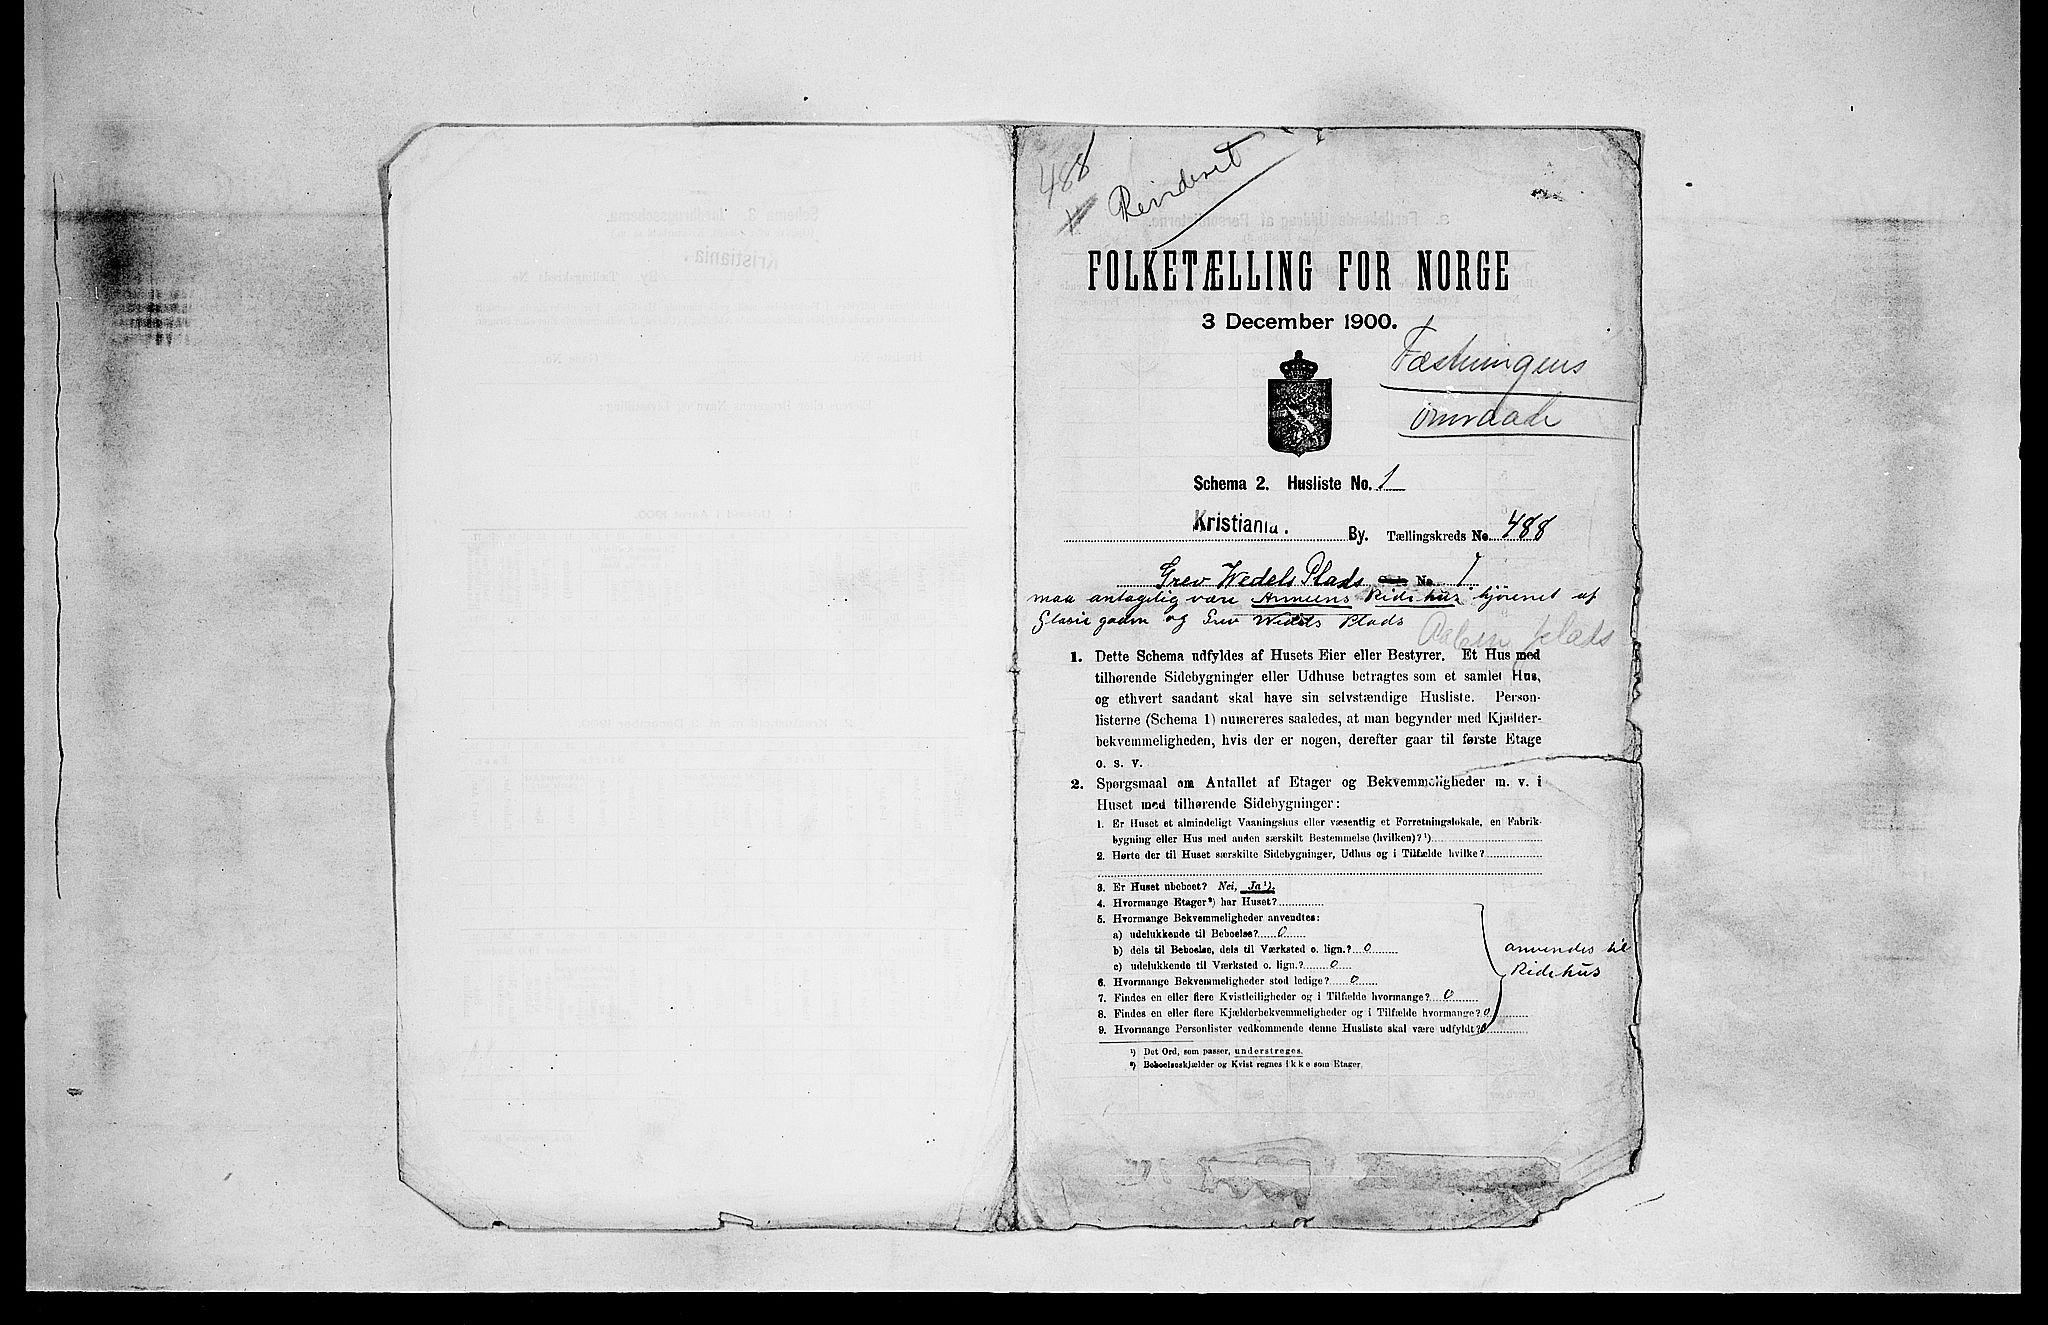 488
Revideret
FOLKETÆLLING FOR NORGE
3 December 1900.
Fæstningens
omraade
Schema 2. Husliste No. 1
Kristiania. By. Tællingskreds No. 488
Grev Wedels Plads Gade No. 1
maa antagelig være Armeens Ridehus hjørnet af
Glacisgaden og Grev Wedels Plads
plads
1. Dette Schema udfyldes af Husets Eier eller Bestyrer. Et Hus med
tilhørende Sidebygninger eller Udhuse betragtes som et samlet Hus,
og ethvert saadant skal have sin selvstændige Husliste. Person-
listerne (Schema 1) numereres saaledes, at man begynder med Kjælder-
bekvemmeligheden, hvis der er nogen, derefter gaar til første Etage
o. s. v.
2. Spørgsmaal om Antallet af Etager og Bekvemmeligheder m. v. i
Huset med tilhørende Sidebygninger:
1. Er Huset et almindeligt Vaaningshus eller væsentlig et Forretningslokale, en Fabrik-
bygning eller Hus med anden særskilt Bestemmelse (hvilken)?¹)
2. Hørte der til Huset særskilte Sidebygninger, Udhus og i Tilfælde hvilke?
3. Er Huset ubeboet? Nei, Ja¹).
4. Hvormange Etager²) har Huset?
5. Hvormange Bekvemmeligheder anvendtes:
a) udelukkende til Beboelse? 0
b) dels til Beboelse, dels til Værksted o. lign.? 0
c) udelukkende til Værksted o. lign.? 0
anvendes til
Ridehus
6. Hvormange Bekvemmeligheder stod ledige? 0
7. Findes en eller flere Kvistleiligheder og i Tilfælde hvormange? 0
8. Findes en eller flere Kjælderbekvemmeligheder og i Tilfælde hvormange? 0
9. Hvormange Personlister vedkommende denne Husliste skal være udfyldt? 0
¹) Det Ord, som passer, understreges.
²) Beboelseskjælder og Kvist regnes ikke som Etager.